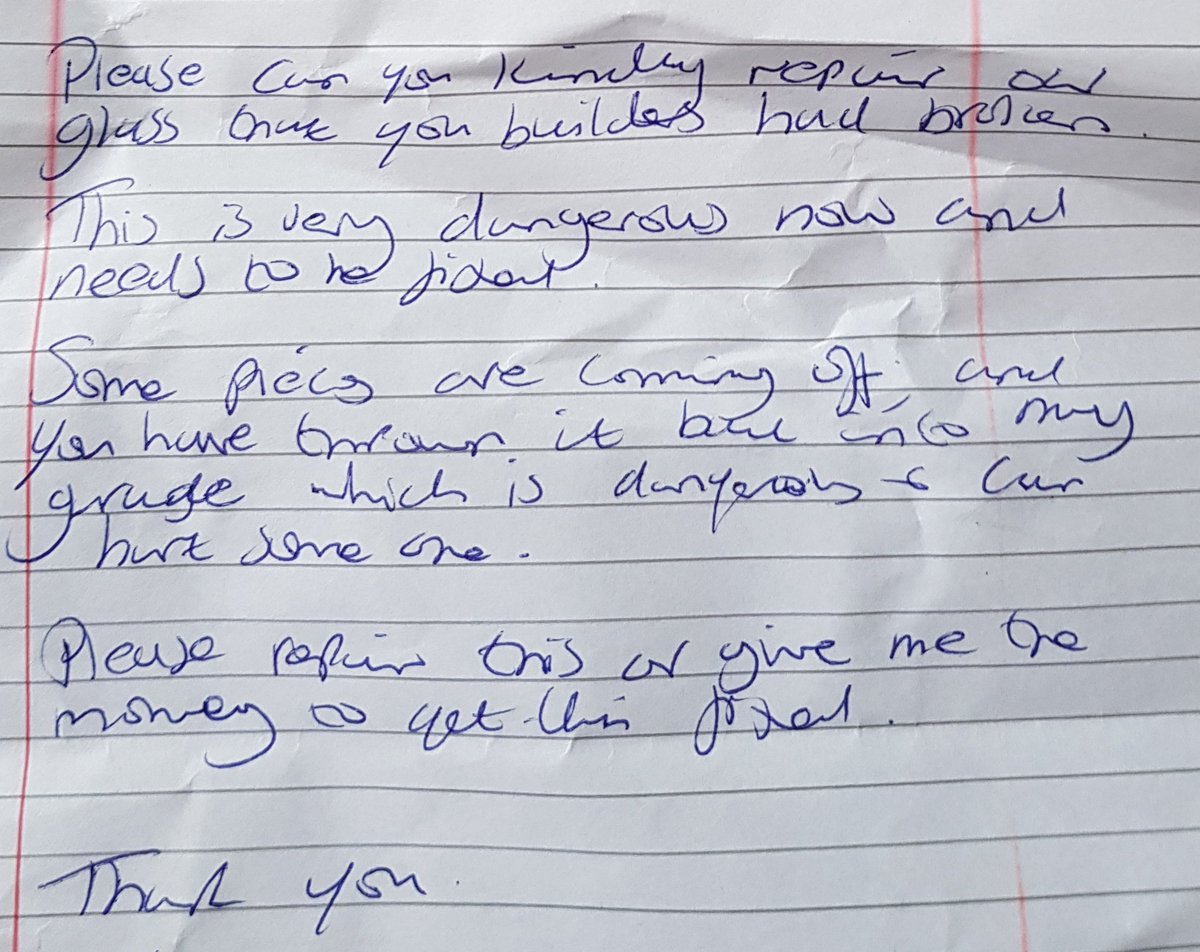 Please can you kindly repair our
glass that you builders had broken.
This is very dangerous now and
needs to be fixed.
Some pieces are coming off, and
you have thrown it back into my
grage which is dangerous & can
hurt some one.
Please repair this or give me the
money to get this fixed.
Thank you.